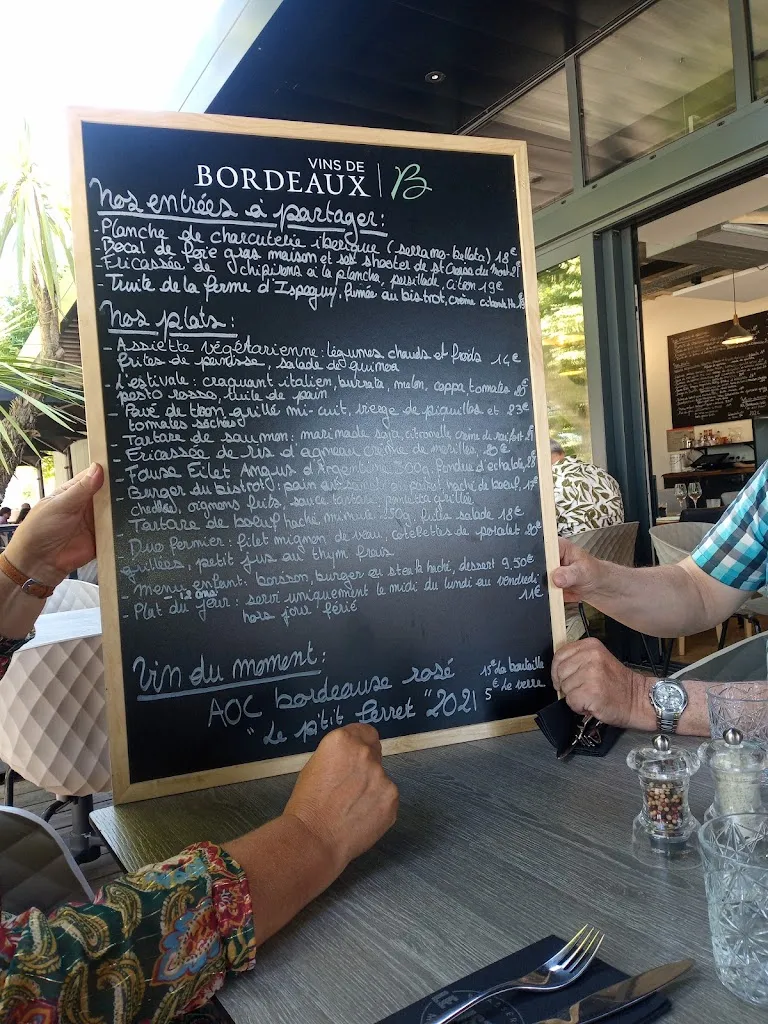 VINS DE
BORDEAUX
Nos entrées à partager:
- Planche de charcuterie iberique (serrano-bellota) 18€
- Bocal de foie gras maison et ses shooter de st Croix du mont
- Fricassée de chipirons à la plancha, persillade, citron 19€
- Truite de la ferme d'Ispeguy, fumée au bistrot, crème
Nos plats:
- Assiette végétarienne: légumes chauds et froids 14€
frites de panisse, salade de quinoa
- L'estivale: craquant italien, burrata, melon, coppa, tomates
pesto rosso, tuile de pain
- Pavé de thon grillé mi-cuit, vierge de piquillos et 23€
tomates séchées
- Tartare de saumon: marinade soja, citronelle, crème de raifort
- Fricassée de ris d'agneau crème de morilles,
- Fause Filet Angus d'Argentine 300g, fondue d'echalote
- Burger du bistrot: pain haché de boeuf,
cheddar, oignons frits, sauce tartare, pancetta grillée
- Tartare de boeuf haché minute 180g, salade 18€
- Duo fermier: filet mignon de veau, cotelettes de porcelet
grillées, petit jus au thym frais
- Menu enfant: boisson, burger ou steak haché, dessert 9,50€
- Plat du jour: servi uniquement le midi du lundi au vendredi
hors jour férié 11€
Vin du moment:
AOC bordeause rosé 15€ la bouteille
"Le p'tit Ferret" 2021 5€ le verre